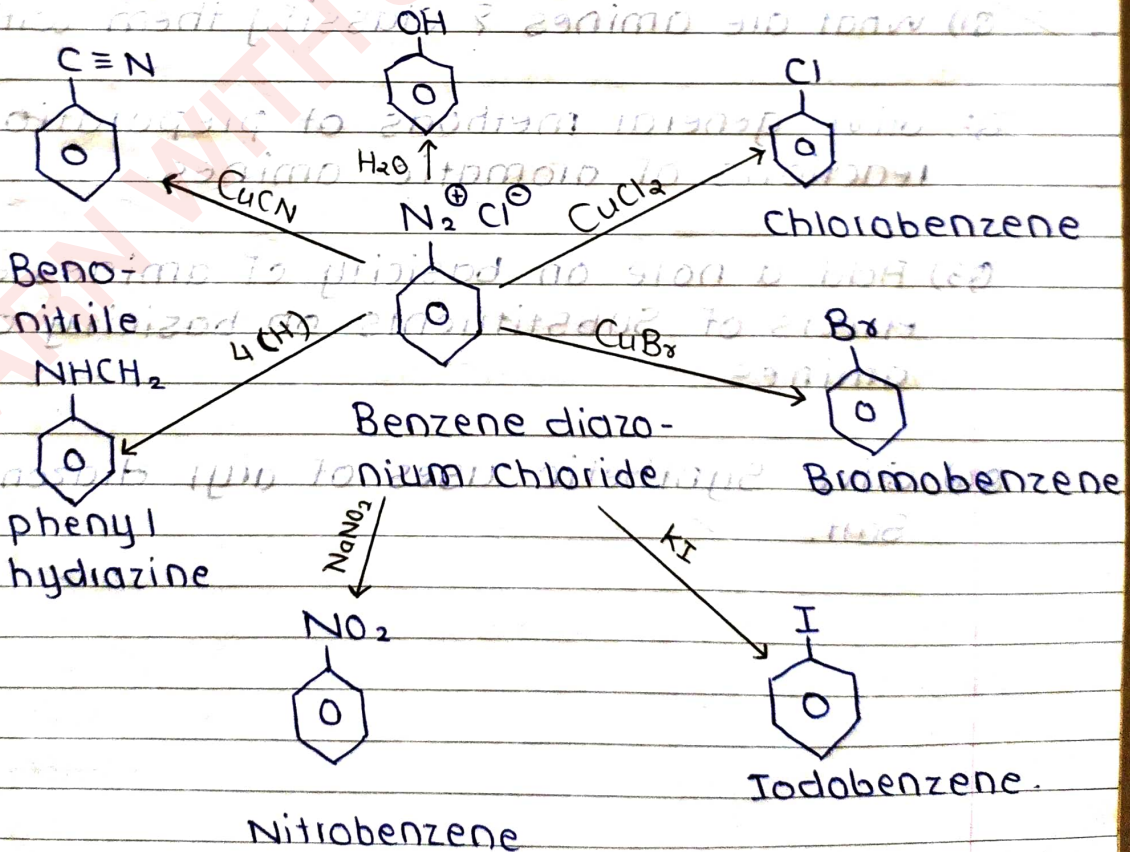 OH
C ≡ N
Cl
H2O ↑
CuCN
N2⊕ Cl⊖
CuCl2
Chlorobenzene
Beno-
nitrile
4(H)
CuBr
Br
NHCH2
Benzene diazo-
nium chloride
Bromobenzene
phenyl
hydrazine
NaNO2
KI
NO2
I
Iodobenzene.
Nitrobenzene